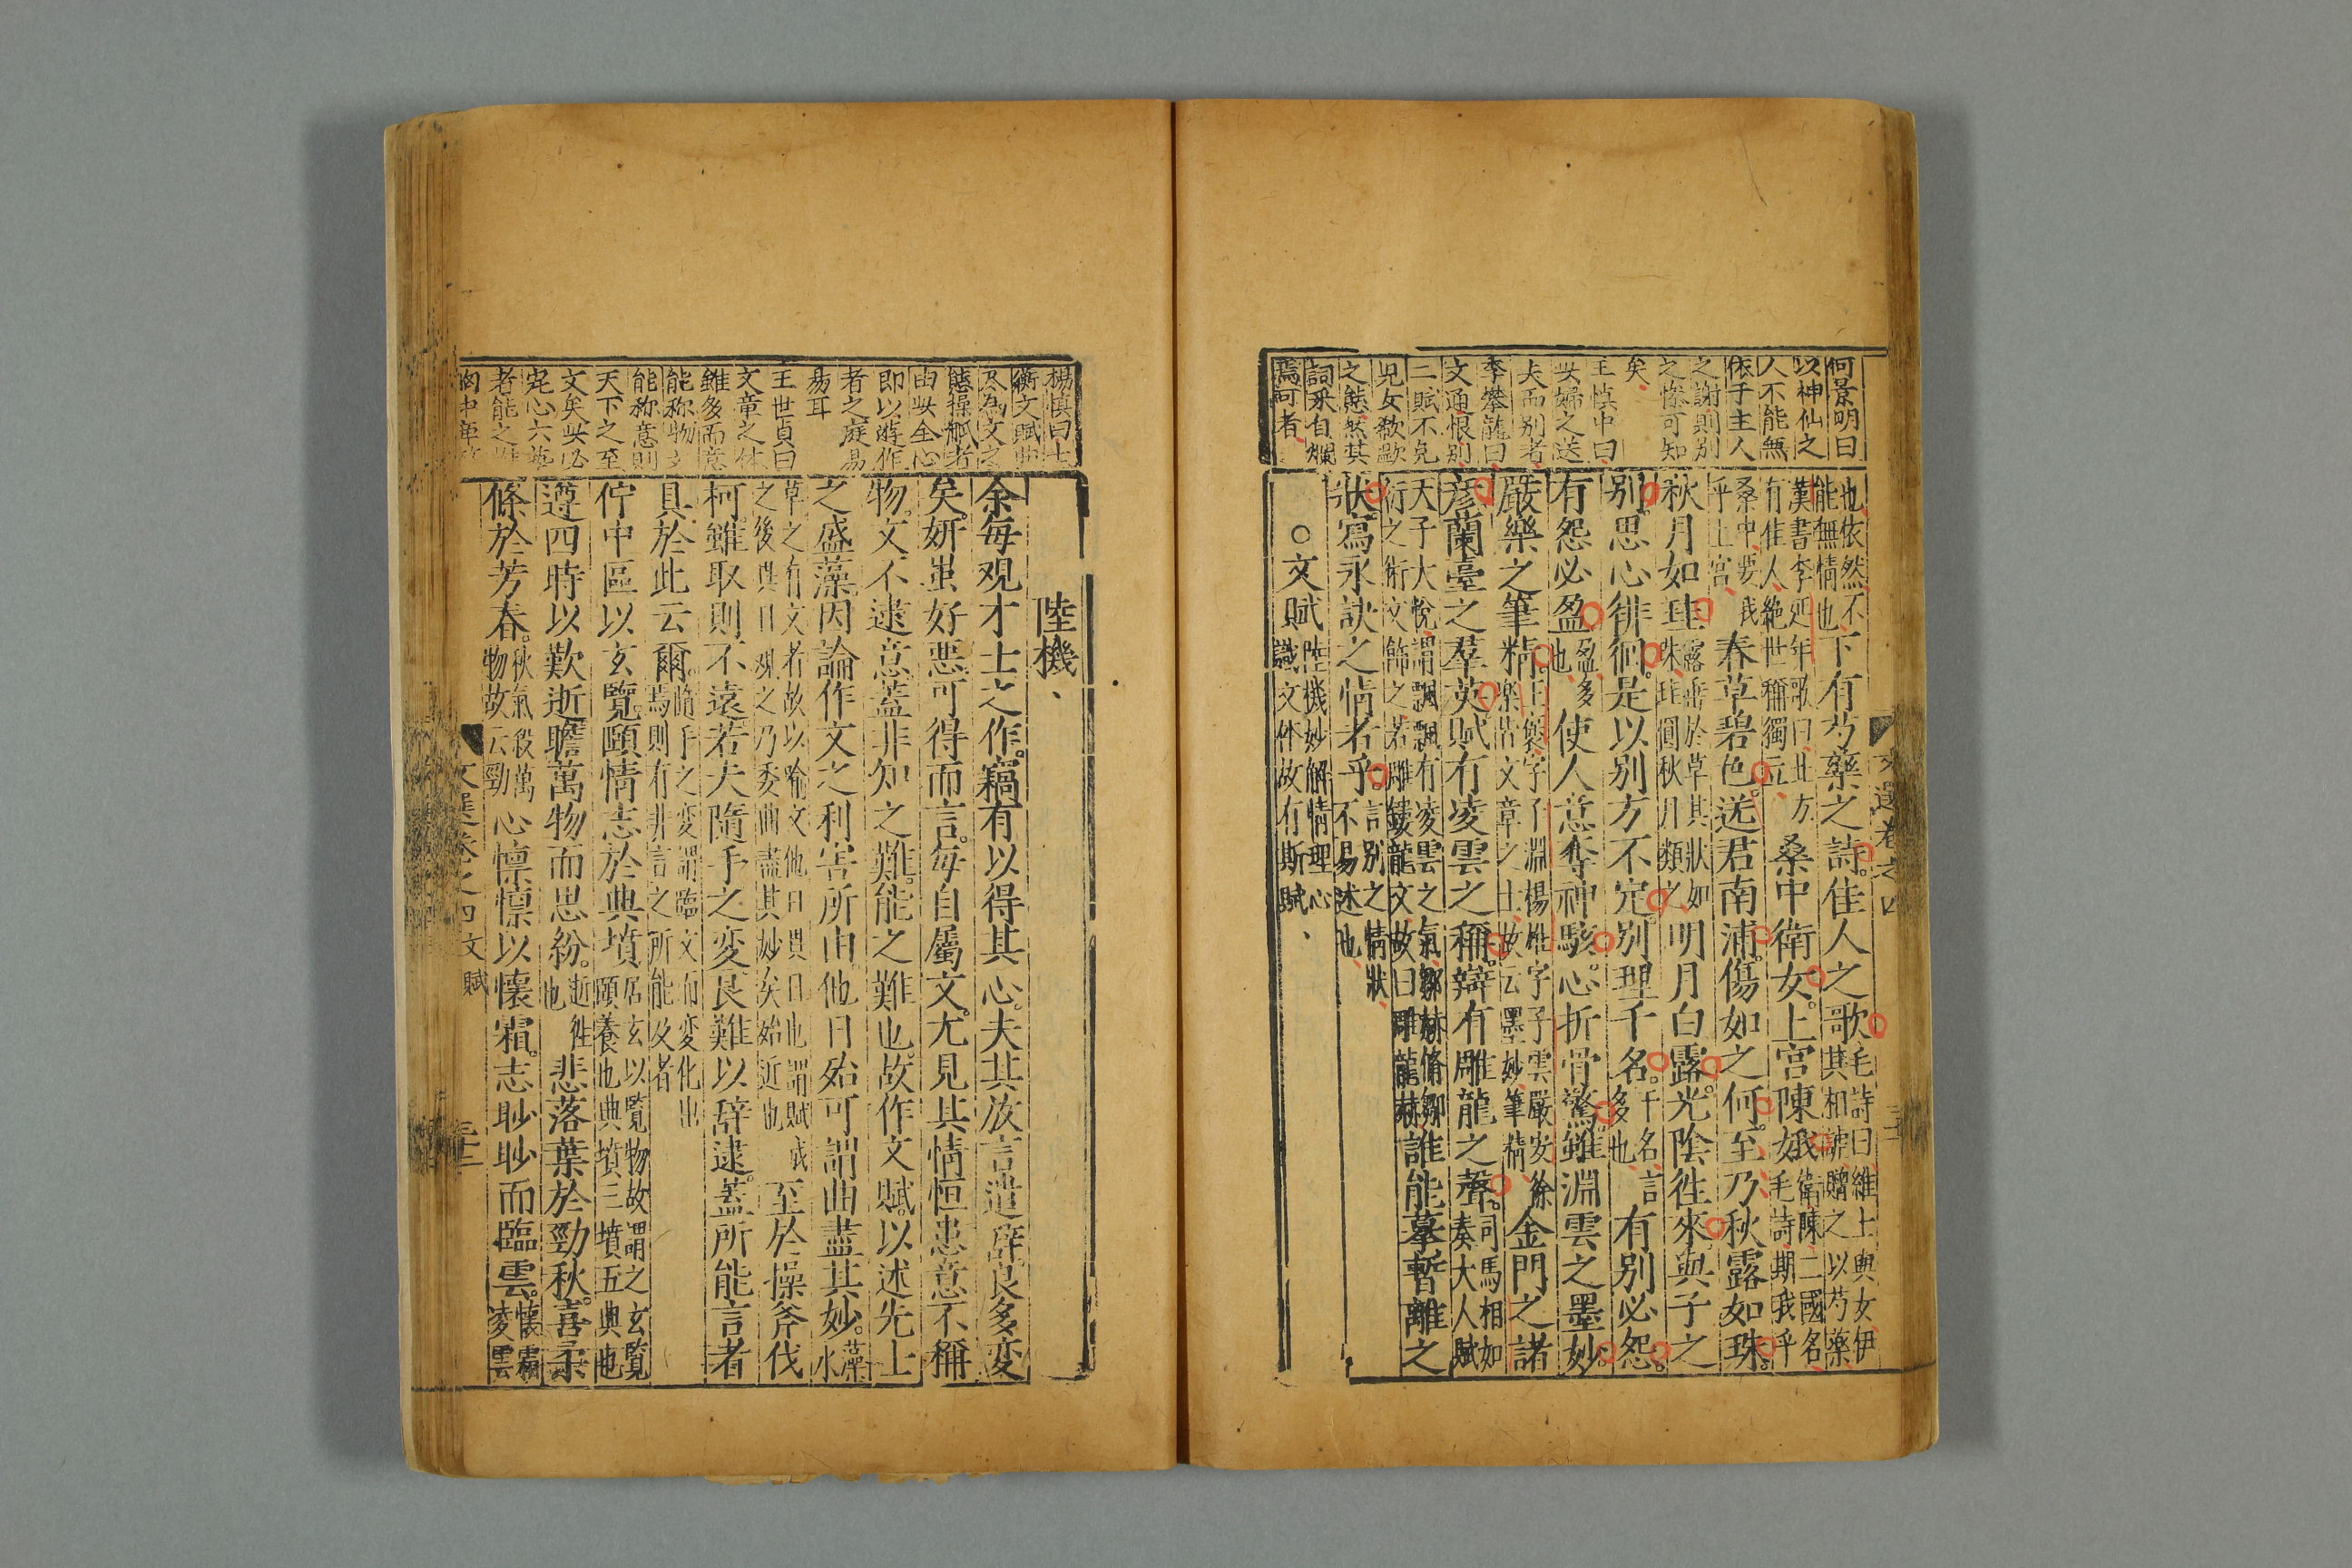 何景明曰
以神仙之
人不能無
依子主人
之謝則別
之慘可知
矣
王慎中曰
此婦之送
夫而別者
李攀龍曰
文通恨別
二賦不免
兒女欷歔
之態然其
詞采自爛
焉可者
也依然不
能無情也
下有芍藥之詩佳人之歌
毛詩曰維士與女伊
其相謔贈之以芍藥
漢書李延年歌曰北方
有佳人絕世稱獨立
桑中衛女上宮陳娥
衛陳二國名
毛詩期我乎
桑中要我
乎上宮
春草碧色送君南浦傷如之何至乃秋露如珠
秋月如珪
露垂於草其狀如
珠珪圓秋月類之
明月白露光陰徃來與子之
別思心徘徊是以別方不定別理千名
千名言
多也
有別必怨
有怨必盈
盈多
也
使人意奪神駭心折骨驚雖淵雲之墨妙
嚴樂之筆精
王褒字子淵楊雄字子雲嚴安徐
樂皆文章之士故云墨妙筆精
金門之諸
彦蘭臺之羣英賦有凌雲之稱辯有雕龍之聲
司馬相如
奏大人賦
天子大悅謂飄飄有凌雲之氣鄒赫脩鄒
衍之術文飾之若雕鏤龍文故曰雕龍赫
誰能摹暫離之
狀寫永訣之情者乎
言別之情狀
不易述也
○文賦
陸機妙解情理心
識文体故有斯賦
文選卷之四
楊慎曰士
衡文賦曲
盡為文之
態操觚者
由此全心
即以遊作
者之庭易
易耳
王世貞曰
文章之体
雖多而意
能称物文
能称意則
天下之至
文矣此必
究心六藝
者能之
胸中
陸機
余每观才士之作竊有以得其心夫其放言遣辭良多変
矣妍蚩好惡可得而言每自屬文尤見其情恒患意不稱
物文不逮意蓋非知之難能之難也故作文賦以述先士
之盛藻因論作文之利害所由他日殆可謂曲盡其妙
藻水
草之有文者故以喻文他曰異日也謂賦成
之後異日观之乃委曲盡其妙矣始近也
至於操斧伐
柯雖取則不遠若夫隨手之変良難以辞逮蓋所能言者
具於此云爾
隨手之変謂臨文而変化出
焉則有非言之所能及者
佇中區以玄覽頤情志於典墳
居玄以覽物故謂之玄覽
頤養也典墳三墳五典也
遵四時以歎逝瞻萬物而思紛
逝徃
也
悲落葉於勁秋喜柔
條於芳春
秋氣殺萬
物故云勁
心懍懍以懷霜志眇眇而臨雲
懷霜
凌雲
文選卷之四 文賦